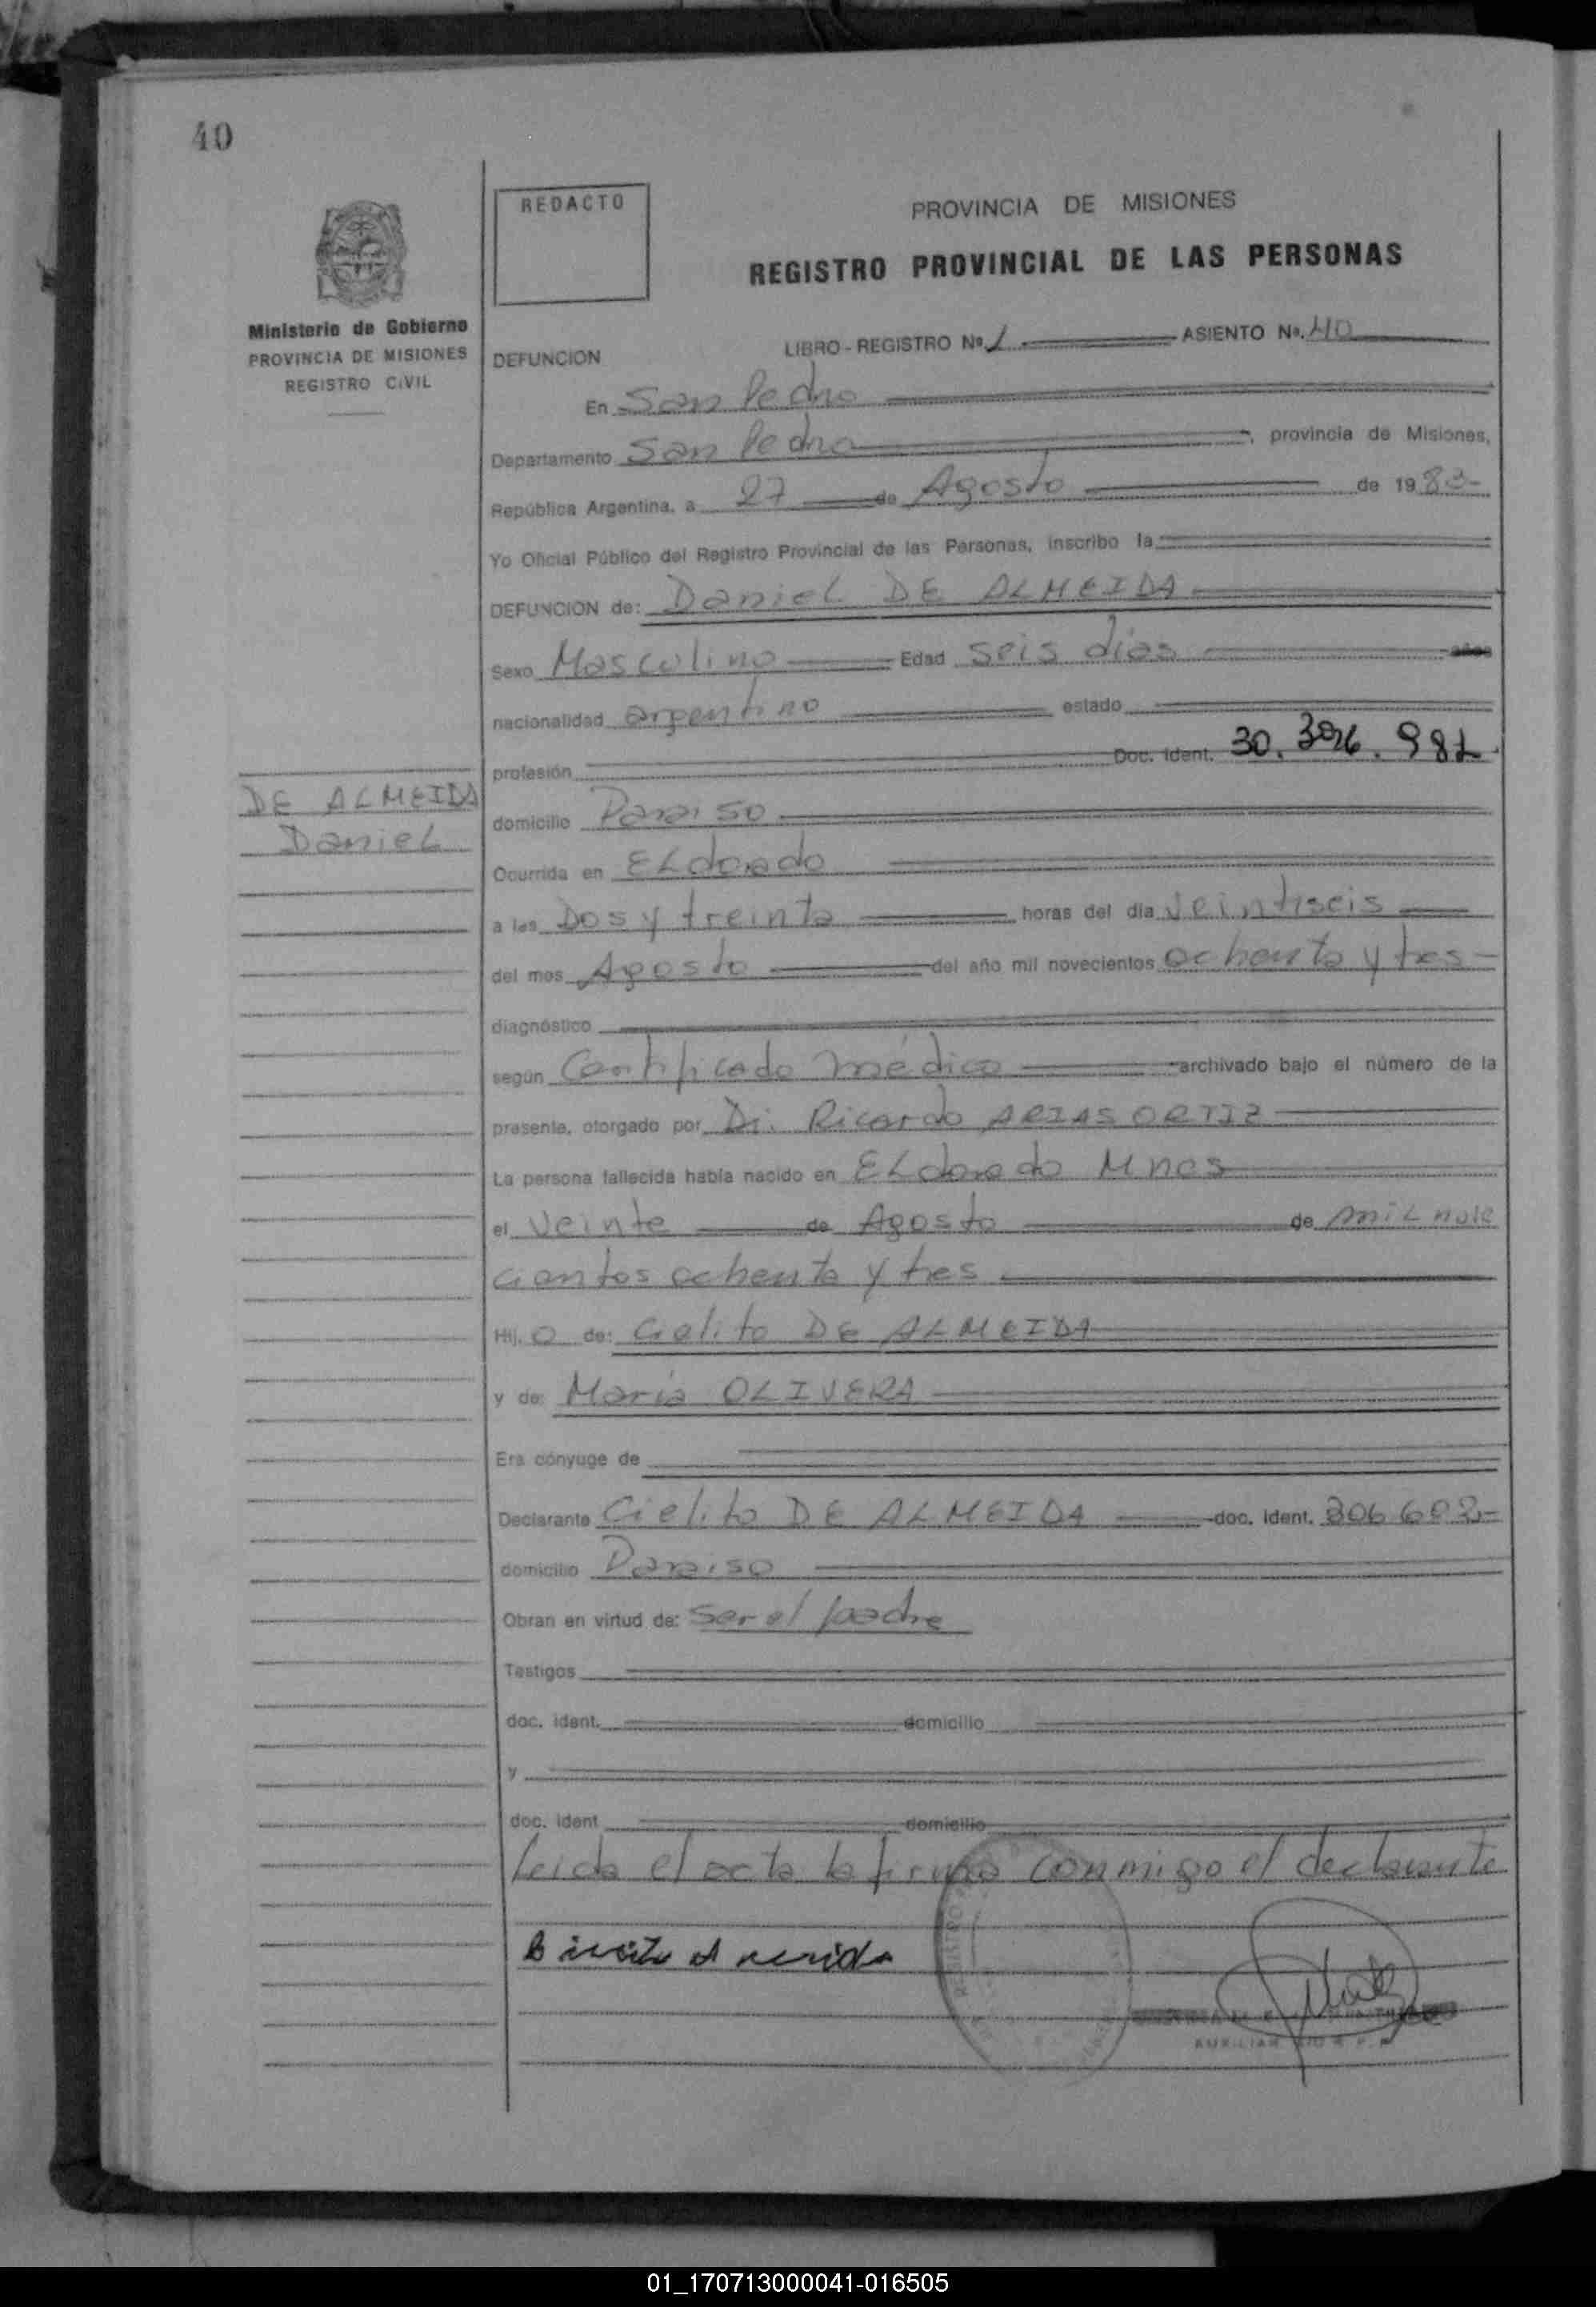 40
REDACTO
PROVINCIA DE MISIONES
REGISTRO PROVINCIAL DE LAS PERSONAS
Ministerio de Gobierno
PROVINCIA DE MISIONES
REGISTRO CIVIL
DEFUNCION
LIBRO - REGISTRO Nº 1 ASIENTO Nº. 40
En San Pedro
Departamento San Pedro, provincia de Misiones,
República Argentina, a 27 de Agosto de 1983
Yo Oficial Público del Registro Provincial de las Personas, inscribo la
DEFUNCION de: Daniel DE ALMEIDA
Sexo Masculino Edad seis días años
nacionalidad argentino estado
profesión Doc. ident. 30.
DE ALMEIDA
Daniel
domicilio Paraiso
Ocurrida en ELdorado
a las Dos y treinta horas del día veintiseis
del mes Agosto del año mil novecientos ochenta y tres
diagnóstico
según Certificado médico archivado bajo el número de la
presente, otorgado por Dr. Ricardo ARIAS ORTIZ
La persona fallecida había nacido en ELdorado Mnes
el veinte de Agosto de mil nove
cientos ochenta y tres
Hij o de: Cielito DE ALMEIDA
y de: María OLIVERA
Era cónyuge de
Declarante Cielito DE ALMEIDA doc. ident.
domicilio Paraiso
Obran en virtud de: Ser el padre
Testigos
doc. ident. domicilio
y
doc. ident domicilio
Leida el acta la firma conmigo el declarante
AUXILIAR
01_170713000041-016505